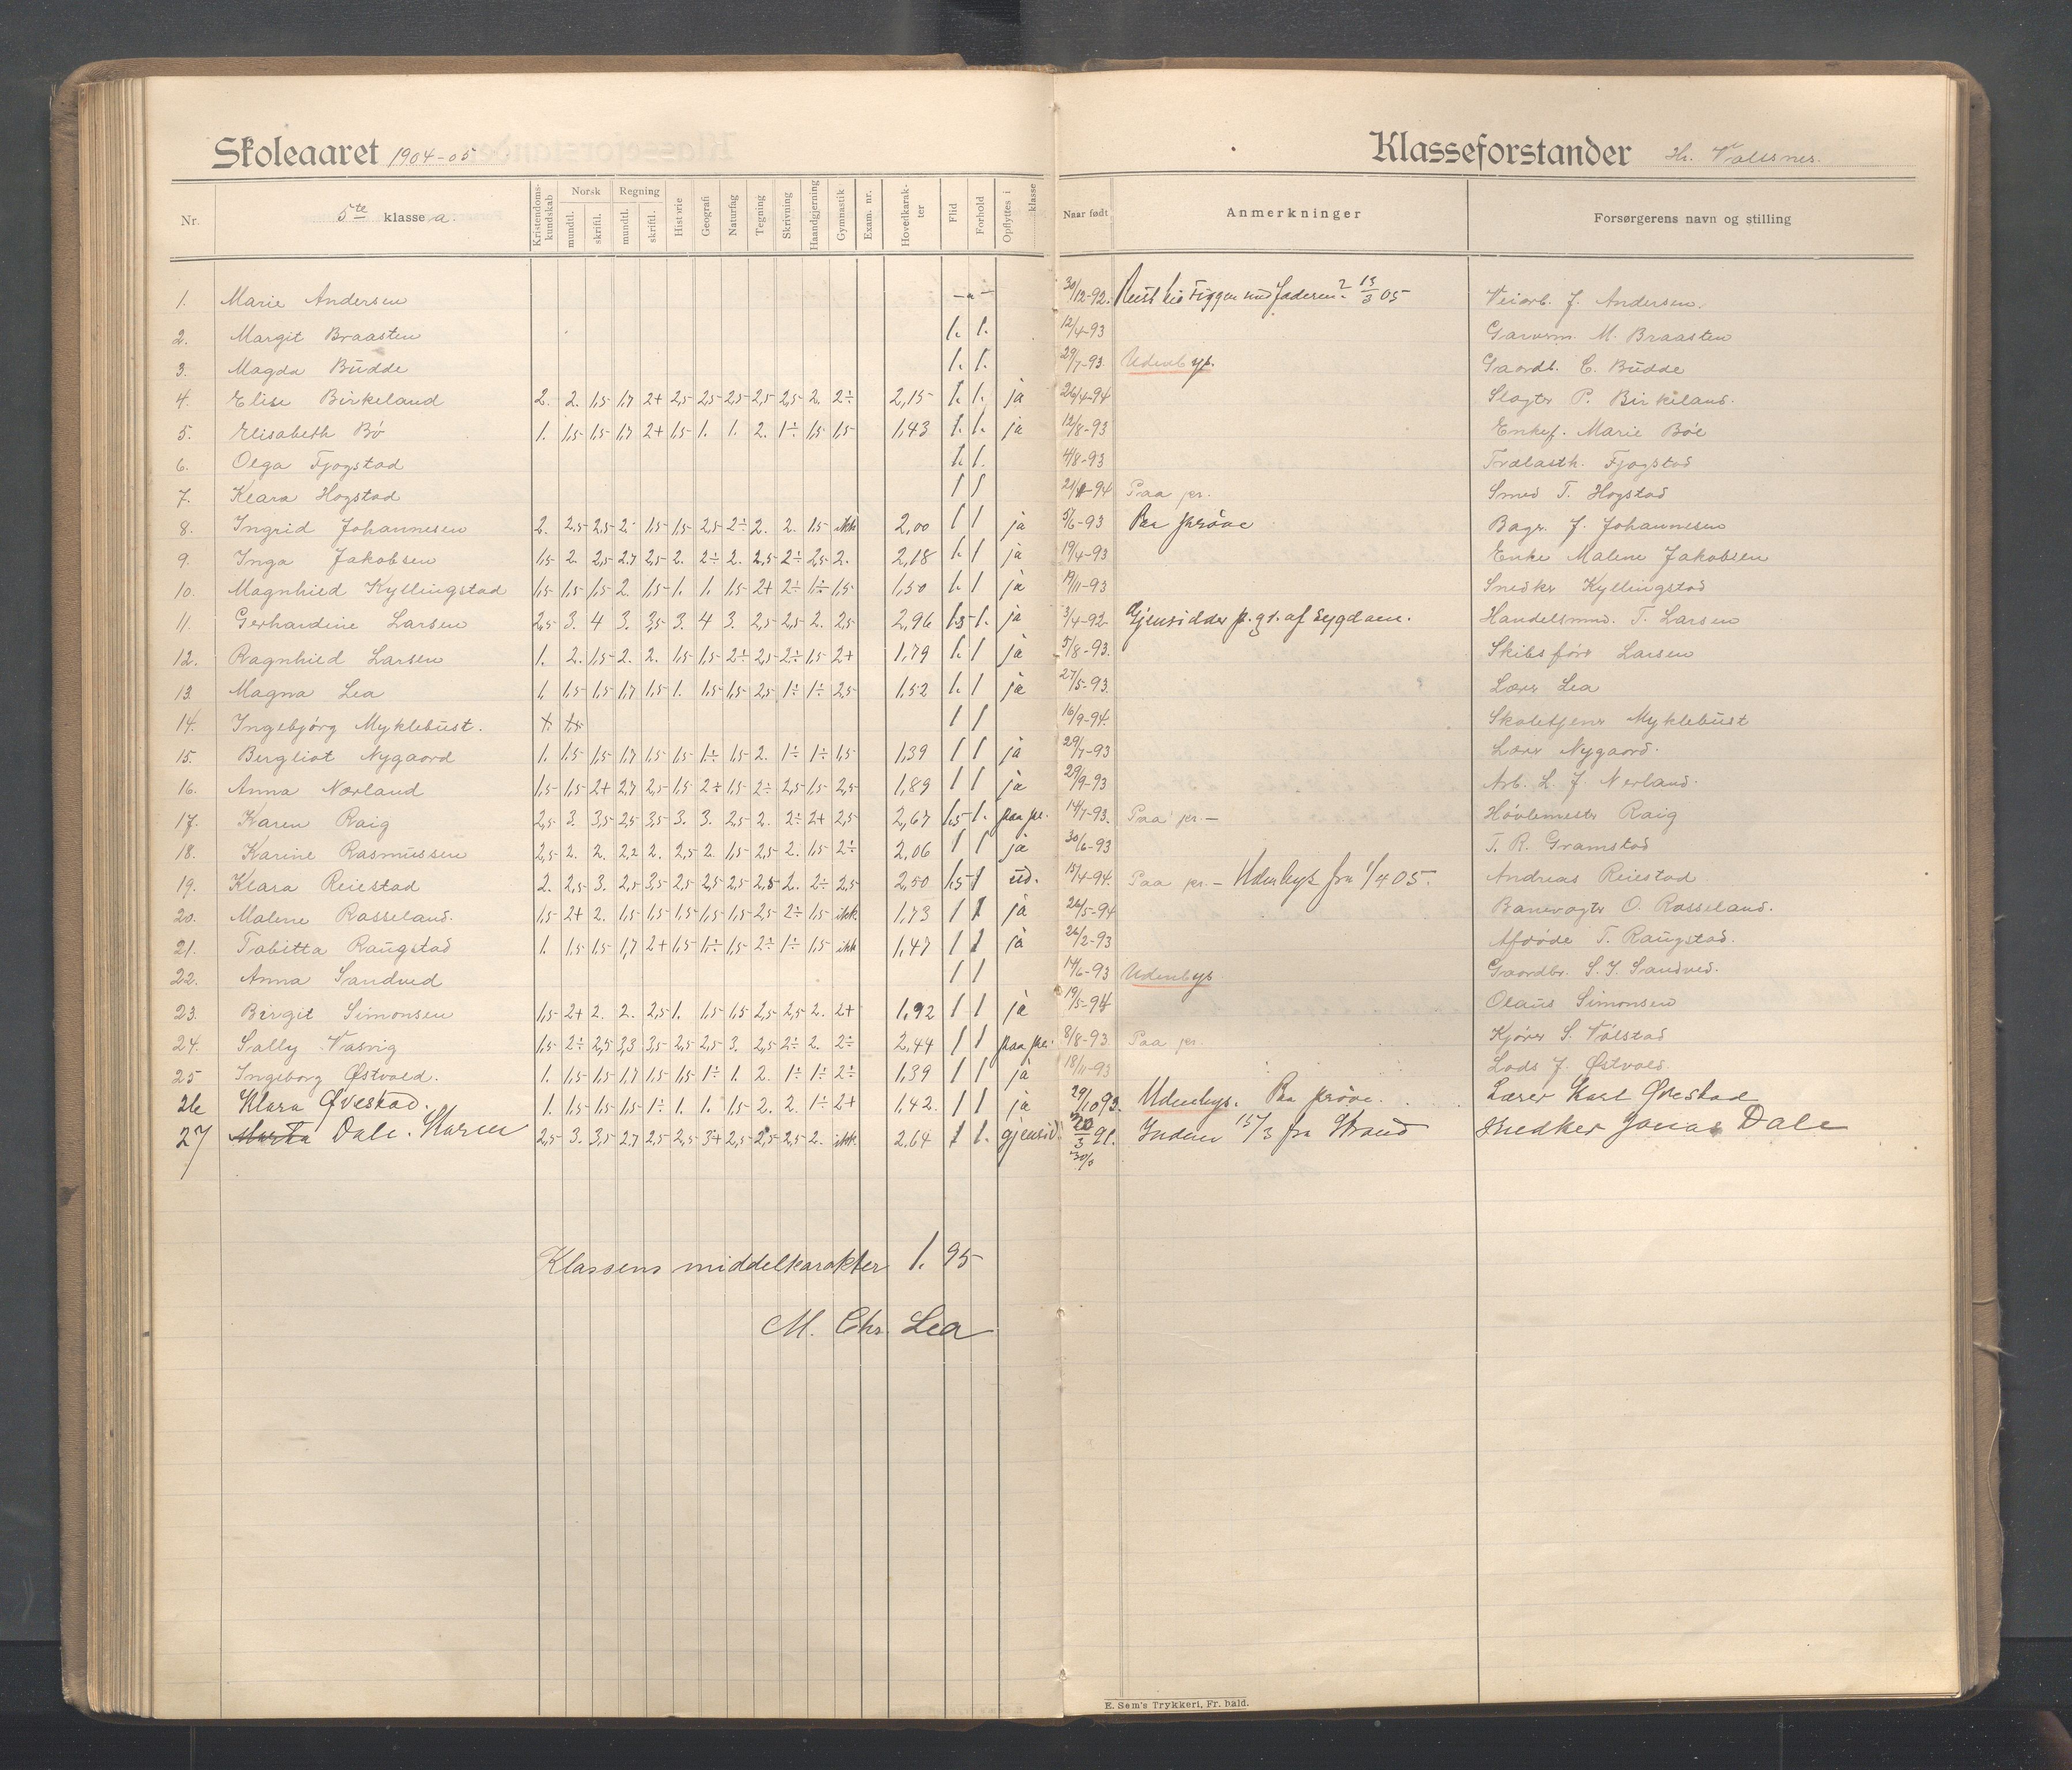 Skoleaaret 1904-05
Klasseforstander Hr.
Nr. 5te klasse a. Kristendomskundskab Norsk mundtl. skriftl. Regning mundtl. skriftl. Historie Geografi Naturfag Tegning Skrivning Haandgjerning Gymnastik Exam. nr. Hovedkarakter Flid Forhold Opflyttes i klasse Naar født Anmerkninger Forsørgerens navn og stilling
1. Marie Andersen — " — 30/12-92. 13/3 05 Veiarb. J. Andersen.
2. Margit Braasten 1. 1. 12/4-93 Garverm. M. Braasten
3. Magda Budde 1. 1. 29/7-93 Udenbys. Gaardb. C. Budde
4. Elise Birkeland 2. 2. 1,5 1,7 2+ 2,5 2,5 2,5 2,5 2,5 2. 2÷ 2,15 1. 1. ja 26/4-94 Slagter P. Birkeland.
5. Elisabeth Bö 1. 1,5 1,5 1,7 2+ 1,5 1. 1. 2. 1÷ 1,5 1,5 1,43 1. 1. ja 12/8-93 Enkef. Marie Böe
6. Olga Fjogstad 1. 1. 4/8-93 Trælasth. Fjogstad
7. Klara Hogstad 1 1 Paa pr. Smed T. Hogstad
8. Ingrid Johannesen 2. 2,5 2,5 2. 1,5 1,5 2,5 2÷ 2. 2. 1,5 ikke 2,00 1 1 ja 5/6-93 Paa prøve Bager J. Johannesen
9. Inga Jakobsen 1,5 2. 2,5 2,7 2,5 2. 2÷ 2. 2,5 2÷ 2,5 2. 2,18 1. 1 ja 19/4-93 Enke Malene Jakobsen
10. Magnhild Kyllingstad 1,5 1,5 1,5 2. 1,5 1. 1. 1,5 2+ 2÷ 1÷ 1,5 1,50 1. 1 ja 19/11-93 Snedker Kyllingstad
11. Gerhardine Larsen 2,5 3. 4 3. 3,5 3. 4 3. 2,5 2,5 2. 2,5 2,96 1.5 1. ja 3/4-92 Gjensidder p.gr. af sygdom. Handelsmnd. T. Larsen
12. Ragnhild Larsen 1. 2. 1,5 2. 2. 1,5 1,5 2÷ 2,5 2÷ 1,5 2+ 1,79 1. 1 ja 5/8-93. Skibsfører Larsen
13. Magna Lea 1. 1,5 1,5 1,7 1,5 1. 1,5 1,5 2,5 1÷ 1÷ 2,5 1,52 1. 1 ja 27/5-93. Lærer Lea
14. Ingebjörg Myklebust. 1 1 16/9-94. Skoletjener Myklebust
15. Bergliot Nygaard 1. 1,5 1,5 1,7 1,5 1,5 1÷ 1,5 2. 1÷ 1÷ 1,5 1,39 1 1 ja 29/7-93 Lærer Nygaard.
16. Anna Nærland 1,5 1,5 2+ 2,7 2,5 1,5 2+ 1,5 2÷ 2,5 1,5 2,5 1,89 1 1 ja 29/9-93 Arb. L. J. Nerland.
17. Karen Raig 2,5 3. 3,5 2,5 3,5 3. 3. 2,5 2. 2÷ 2+ 2,5 2,67 1.5 1. paa pr. 14/7-93. Paa pr. — Høvlemester Raig
18. Karine Rasmussen 2,5 2. 2. 2,2 2. 2,5 2. 1,5 2,5 2. 1,5 2÷ 2,06 1 1 ja 30/6-93 T. R. Gramstad
19. Klara Reiestad 2. 2,5 3. 2,5 3,5 2,5 2,5 2,5 2,5 2. 2÷ 2,5 2,50 1,5 1 ud. 15/4-94. Paa pr. — Udenbys fra 1/4 05. Andreas Reiestad
20. Malene Rosseland. 1,5 2+ 2. 1,5 1,5 1,5 1,5 1,5 2,5 2÷ 1,5 ikk. 1,73 1 1 ja 26/5-94 Banevogter O. Rosseland.
21. Tabitta Raugstad 1. 1,5 1,5 1,7 2+ 1,5 1÷ 1,5 2÷ 1÷ 1,5 ikk 1,47 1 1 ja 26/2-93 Afdøde T. Raugstad.
22. Anna Sandved 1 1 14/6-93 Udenbys Gaardbr. S. J. Sandved.
23. Birgit Simonsen 1,5 2+ 2. 2. 2,5 1. 1,5 1,5 2,5 2,5 2. 2+ 1,92 1 1 ja 19/5-94 Olaus Simonsen
24. Sally Vasvig 1,5 2÷ 2,5 3,3 3,5 2,5 2,5 3. 2,5 2÷ 2. 2÷ 2,44 1 1 paa pr. 8/8-93. Paa pr. Kjører S. Völstad
25 Ingeborg Østvold. 1. 1,5 1,5 1,7 1,5 1,5 1÷ 1. 2. 1÷ 1÷ 2÷ 1,39 1 1 ja 18/11-93 Lods J. Østvold.
26 Klara Qvestad. 1. 1,5 1,5 1,5 1÷ 1. 1. 1,5 2. 2. 1÷ 2+ 1,42. 1 1 ja 29/10 93. Udenbys. Paa prøve. Lærer Karl Qvestad
27 Marta Dale. Maren 2,5 3. 3,5 2,7 2,5 2,5 3+ 2,5 2,5 2,5 2. ikk. 2,64 1 1. gjensid. 91. Inden 15/3 fra Strand Snedker Jonas Dale
Klassens middelkarakter 1.95
M. Chr. Lea
E. Sem's Trykkeri, Fr.hald.